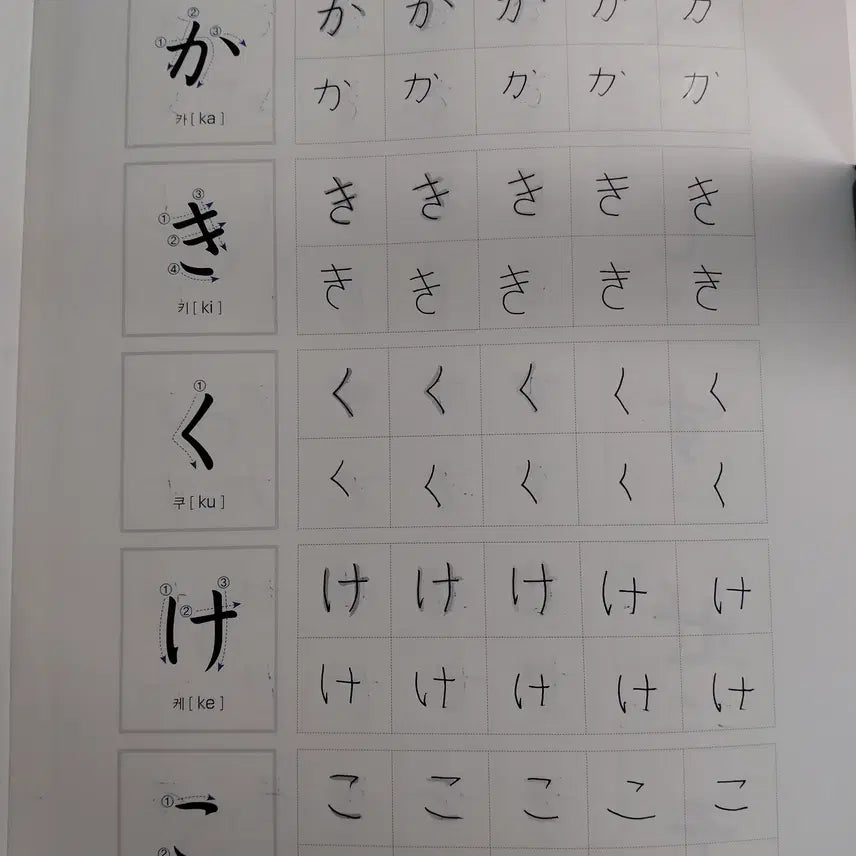 ② ① ③
か か か か か か
카 [ ka ] か か か か か
③ ① ② ④
き き き き き き
키 [ ki ] き き き き き
①
く く く く く く
쿠 [ ku ] く く く く く
① ③ ②
け け け け け け
케 [ ke ] け け け け け
① ②
こ こ こ こ こ